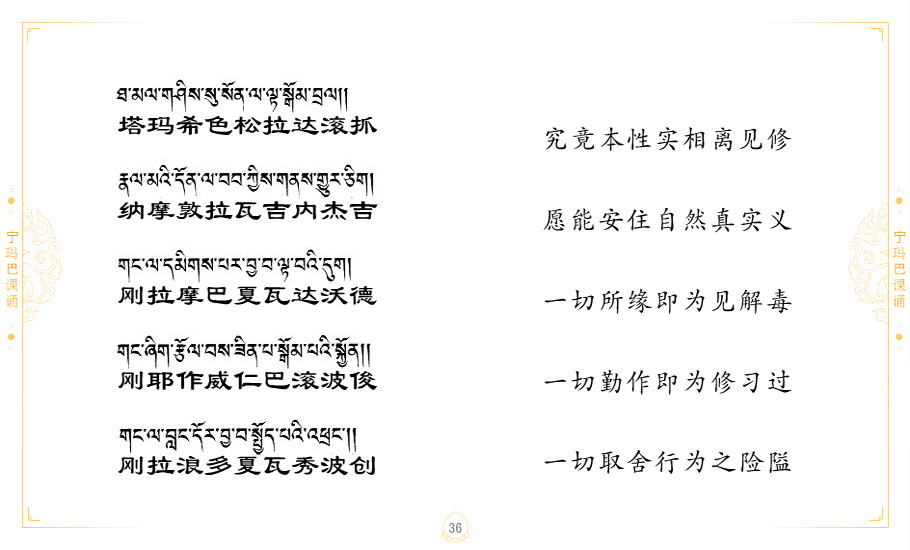 ཐ་མལ་གཤིས་སུ་སོན་ལ་ལྟ་སྒོམ་བྲལ།།
塔玛希色松拉达滚抓
究竟本性实相离见修
རྣལ་མའི་དོན་ལ་བབ་ཀྱིས་གནས་གྱུར་ཅིག།
纳摩敦拉瓦吉内杰吉
愿能安住自然真实义
གང་ལ་དམིགས་པར་བྱ་བ་ལྟ་བའི་དུག།
刚拉摩巴夏瓦达沃德
一切所缘即为见解毒
གང་ཞིག་རྩོལ་བས་ཟིན་པ་སྒོམ་པའི་སྐྱོན།།
刚耶作威仁巴滚波俊
一切勤作即为修习过
གང་ལ་བླང་དོར་བྱ་བ་སྤྱོད་པའི་འཕྲང་།།
刚拉浪多夏瓦秀波创
一切取舍行为之险隘
宁玛巴课诵
宁玛巴课诵
36